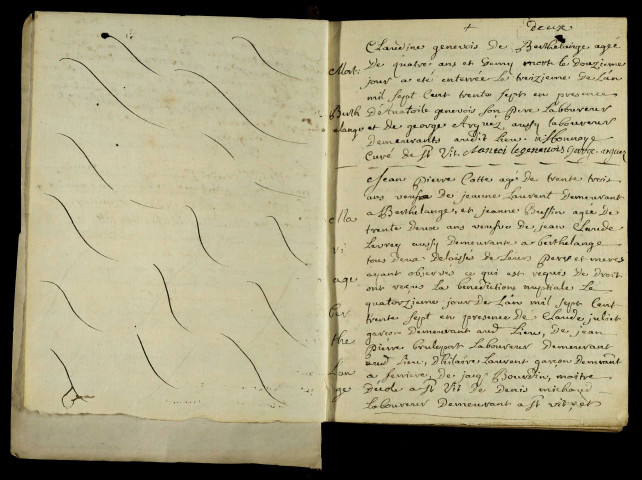 deux
Claudine genevois de Berthelange agée
de quatre ans et demy mort le douzieme
jour a eté enterrée le treizieme de l'an
mil sept Cent trente sept en presence
d'Anatoile genevois son pere laboureur
et de george aussy laboureur
Demeurants audit lieu
Curé de St Vit
Mort
Berth
elange
Jean Pierre Cotte agé de trente trois
ans veufve de jeanne Laurent demeurant
a Berthelange et jeanne agee de
trente deux ans veufve de jean Claude
aussy Demeurante a berthelange
tous deux delaisés de Leurs Peres et meres
ayant observés ce qui est requis de droit
ont reçus la benediction nuptiale le
quatorzieme jour de L'an mil sept Cent
trente sept en presence de Claude juliet
garçon Demeurant aud Lieu, De jean
pierre Laboureur Demeurant
aud Lieu, D'hilaire Laurent garçon Demeurant
a ferriere, De jacq Bourdin, maitre
a St Vit de Denis michaud
Laboureur Demeurant a St vit et
Ma
ri
age
ber
the
lan
ge